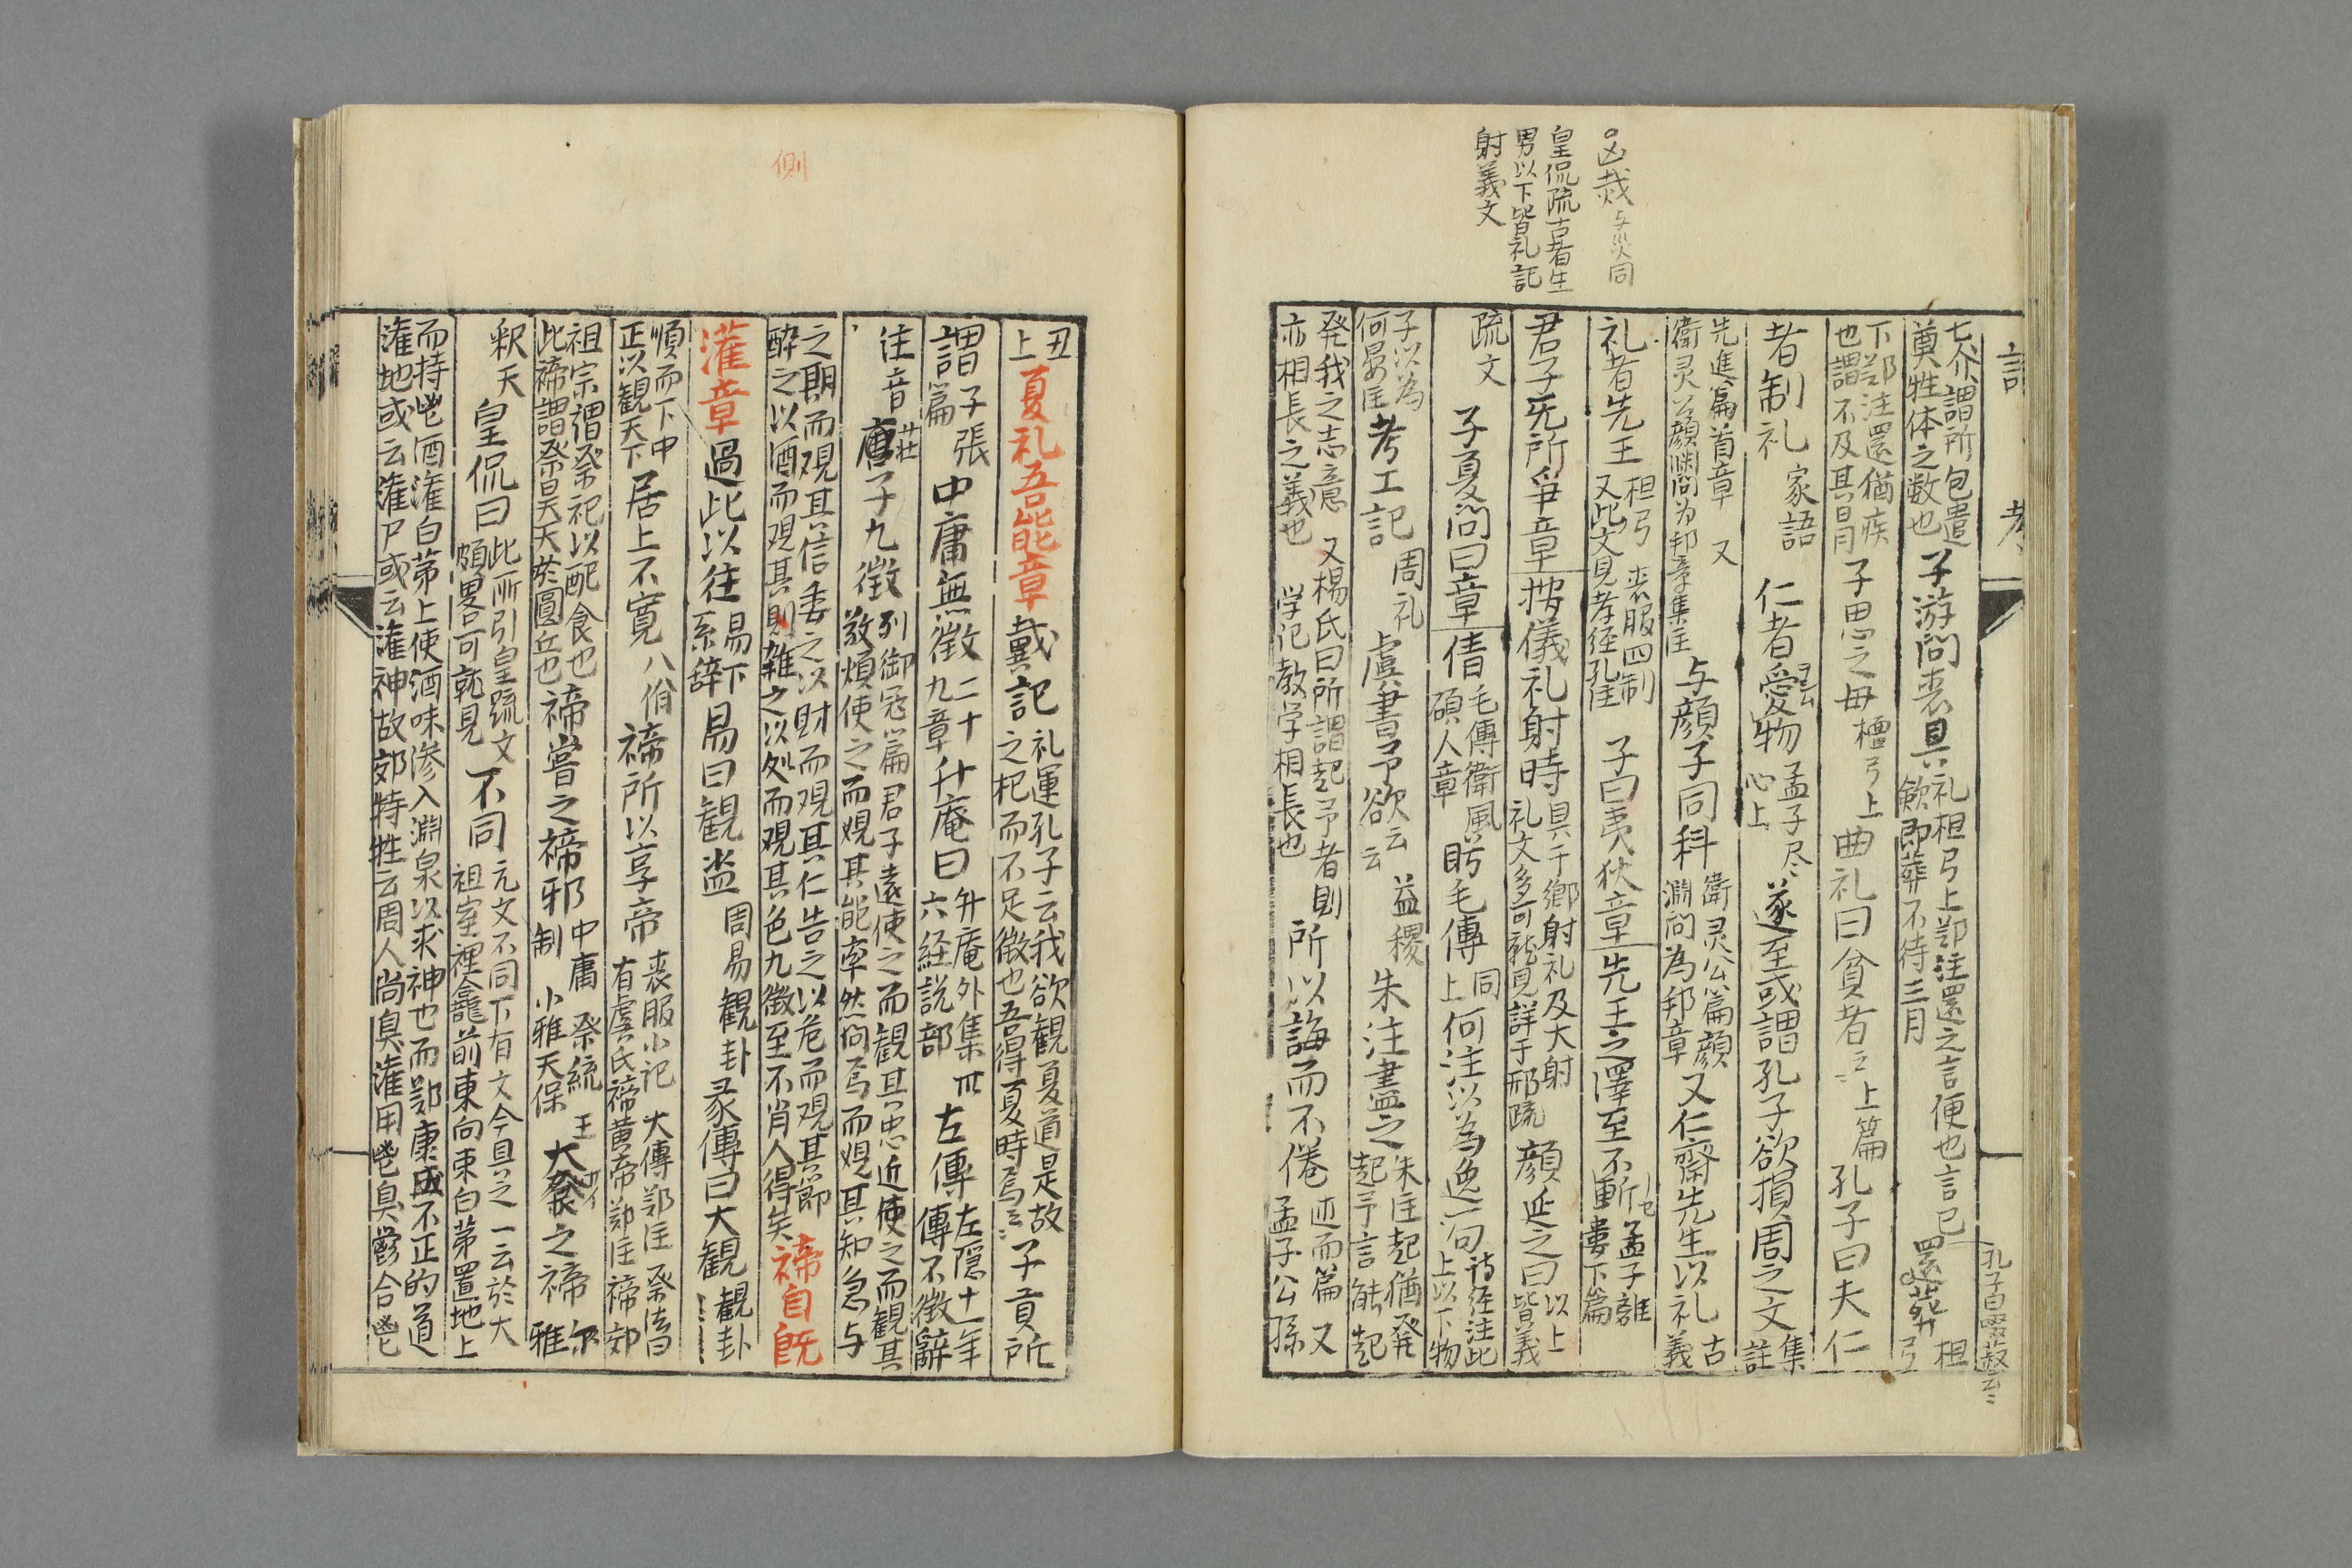 凶烖与災同
皇侃疏古者生
男以下皆礼記
射義文
七个謂所包遣
奠牲体之数也
子游問喪具
礼檀弓上鄭注還之言便也言已
歛即葬不待三月
還葬
檀
弓
下鄭注還猶疾
也謂不及其日月
子思之母
檀弓上
曲礼曰貧者云云
上篇
孔子曰夫仁
者制礼
家語
仁者愛物
孟子尽
心上
遂至或謂孔子欲損周之文
集
註
先進篇首章 又
衛灵公顔渊問为邦章集註
与顔子同科
衛灵公篇顔
淵問為邦章
又仁齋先生以礼
古
義
礼者先王
檀弓 喪服四制
又此文見孝経孔註
子曰夷狄章
先王之澤至不斬
孟子離
婁下篇
君子无所爭章
按儀礼射時
具于鄉射礼及大射
礼文多可就見詳于邢疏
顔延之曰
以上
皆義
疏文
子夏問曰章
倩
毛傳衛風
碩人章
盻毛傳
同
上
何注以為逸一句
詩経注此
上以下物
子以為
何晏註
考工記
周礼
虞書予欲云云
益稷
朱注盡之
朱註起猶発
起予言能起
発我之志意 又楊氏曰所謂起予者則
亦相長之義也 学记教学相長也
所以誨而不倦
述而篇 又
孟子公孫
丑
上
夏礼吾能章
戴記
礼運孔子云我欲観夏道是故
之杞而不足徴也吾得夏時焉云云
子貢所
謂
子張
篇
中庸無徴
二十
九章
升庵曰
升庵外集卌
六経説部
左傳
左隠十一年
傳不徴辭
往音
荘子九徴
列御冦篇君子遠使之而觀其忠近使之而觀其
敬煩使之而観其能率然问焉而観其知急与
之期而观其信委之以財而观其仁告之以危而观其節
醉之以酒而观其則雜之以处而观其色九徴至不肖人得矣
側
禘自既
灌章
過此以往
易下
系辞
易曰観盥
周易観卦
彖傳曰大観
觀卦
順而下中
正以観天下
居上不寛
八佾
禘所以享帝
喪服小记 大傳鄭注 祭法曰
有虞氏禘黄帝鄭注禘郊
祖宗謂祭祀以配食也
此禘謂祭昊天於圓丘也
禘嘗之禘邪
中庸 祭統 王
制 小雅天保
大祭之禘
尓
雅
釈天
皇侃曰
此所引皇疏文
頗畧可就見
不同
元文不同下有文今具之一云於大
祖室裡龕前東向束白茅置地上
而持鬯酒灌白茅上使酒味滲入淵泉以求神也而鄭康成不正的道
灌地或云灌尸或云灌神故郊特牲云周人尚臭灌用鬯臭鬱合鬯